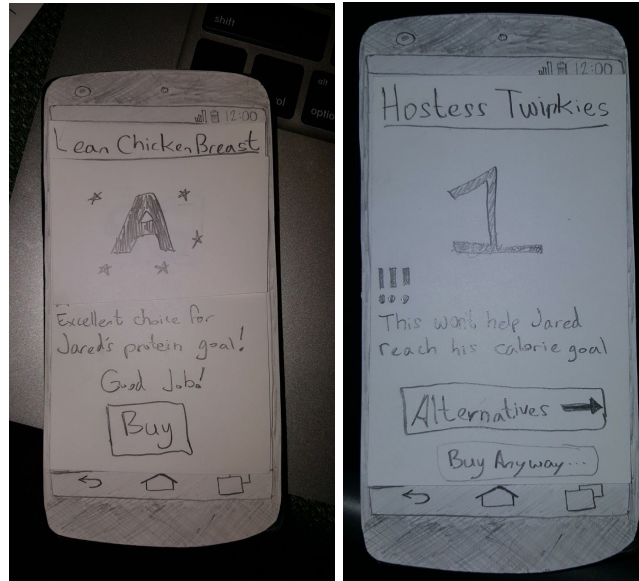 shift
alt
option
12:00
Lean Chicken Breast
A
Excellent choice for
Jared's protein goal!
Good Job!
Buy
12:00
Hostess Twinkies
1
!!!
This won't help Jared
reach his calorie goal
Alternatives →
Buy Anyway...